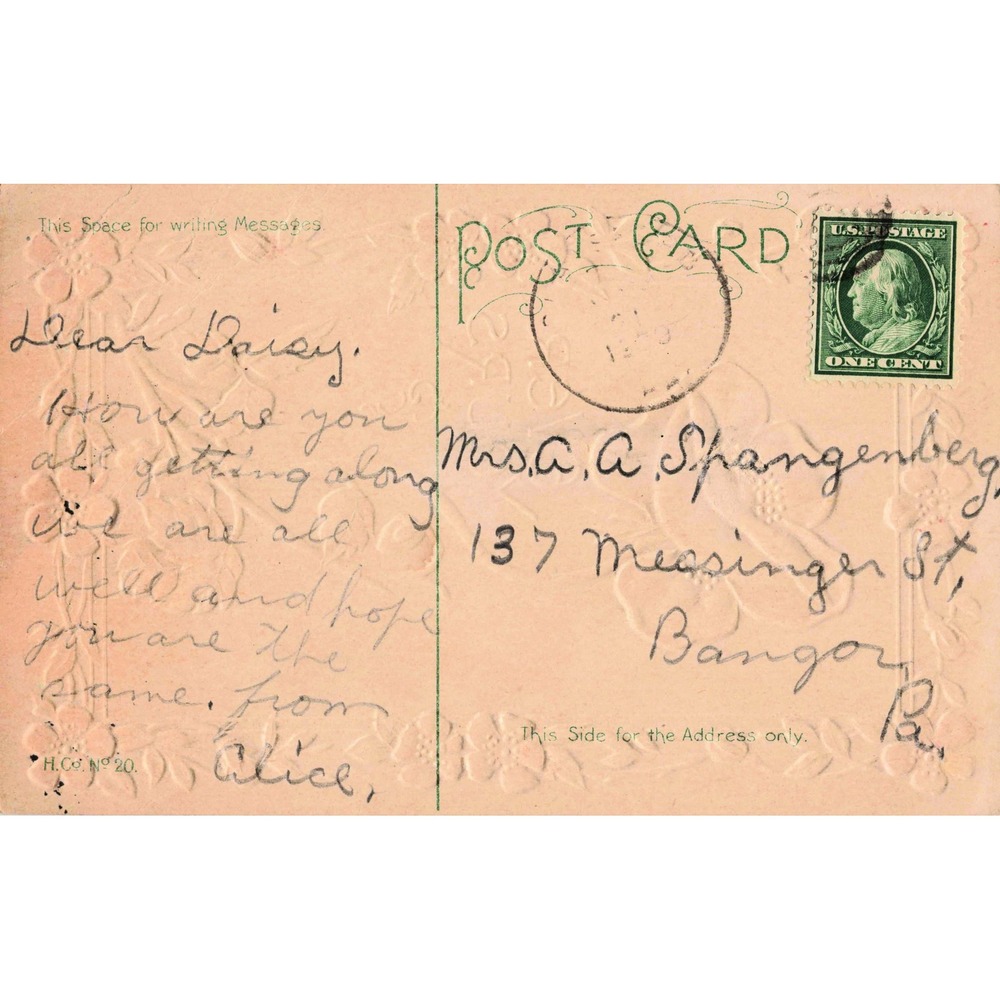 This Space for writing Messages
POST CARD
U.S. POSTAGE
ONE CENT
Dear Daisy.
How are you
all getting along
we are all
well and hope
you are the
same. from
Alice,
Mrs. A. A. Spangenberg,
137 Messinger St,
Bangor
Pa.
This Side for the Address only.
H. Co. No 20.